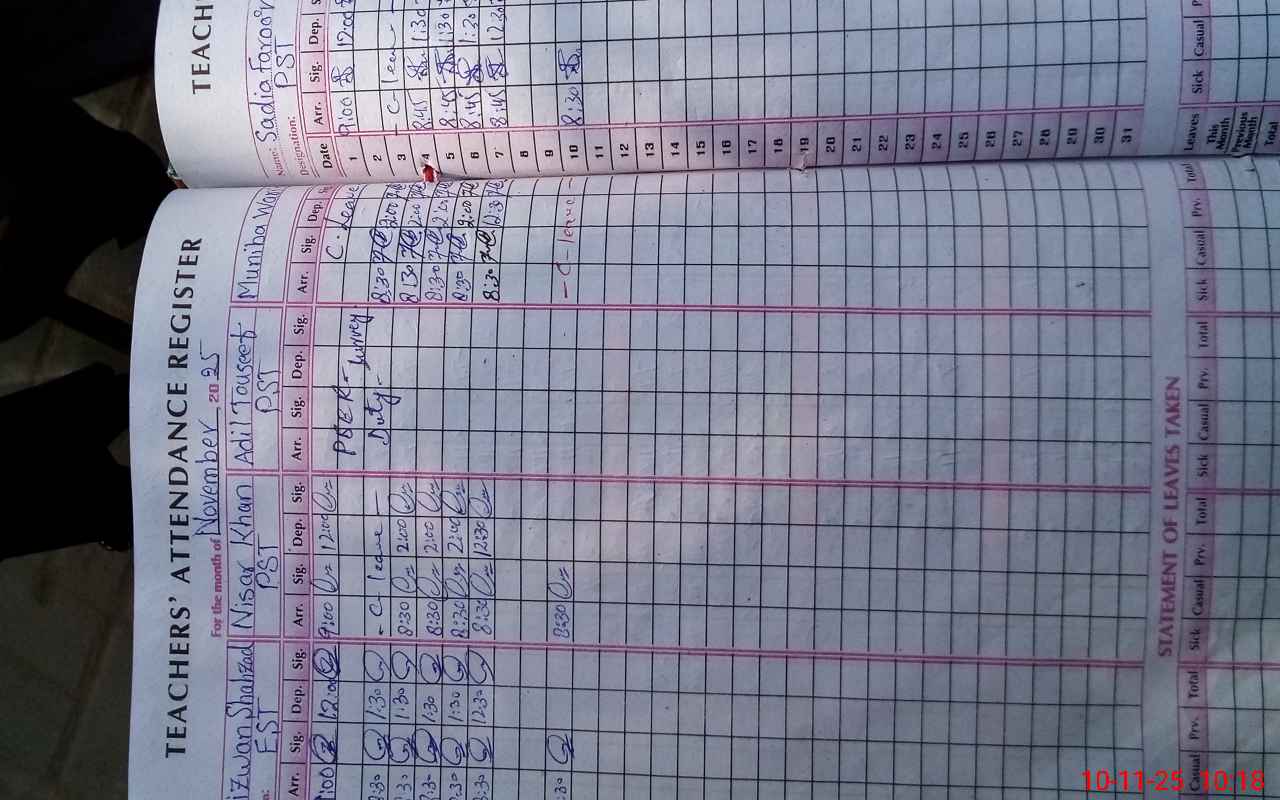 TEACHERS' ATTENDANCE REGISTER
For the month of November 2025
Rizwan Shahzad Nisar Khan Adil Touseef Muniba
EST PST PST
Arr. Sig. Dep. Sig. Arr. Sig. Dep. Sig. Arr. Sig. Dep. Sig. Arr. Sig. Dep.
9:00 12:00 9:00 12:00 C. Leave
Survey
Duty
8:30 1:30 - C - leave - 8:30 2:00
1:30 8:30 2:00 8:30 2:00
8:30 1:30 8:30 2:00 8:30
8:30 1:30 8:30 2:00 8:30 2:00
8:30 12:30 8:30 12:30 8:30 12:30
8:30 8:30 - C - leave -
STATEMENT OF LEAVES TAKEN
Casual Prv. Total Sick Casual Prv. Total Sick Casual Prv. Total Sick Casual Prv. Total
TEACH
Name: Sadia Farooq
Designation: PST
Date Arr. Sig. Dep.
1 9:00 12:00
2
3 - C - leave -
4 8:45 1:30
5 8:45 1:30
6 8:45 1:30
7 8:45 12:30
8
9
10 8:30
11
12
13
14
15
16
17
18
19
20
21
22
23
24
25
26
27
28
29
30
31
Leaves Sick Casual
This Month
Previous Month
Total
10-11-25 10:18